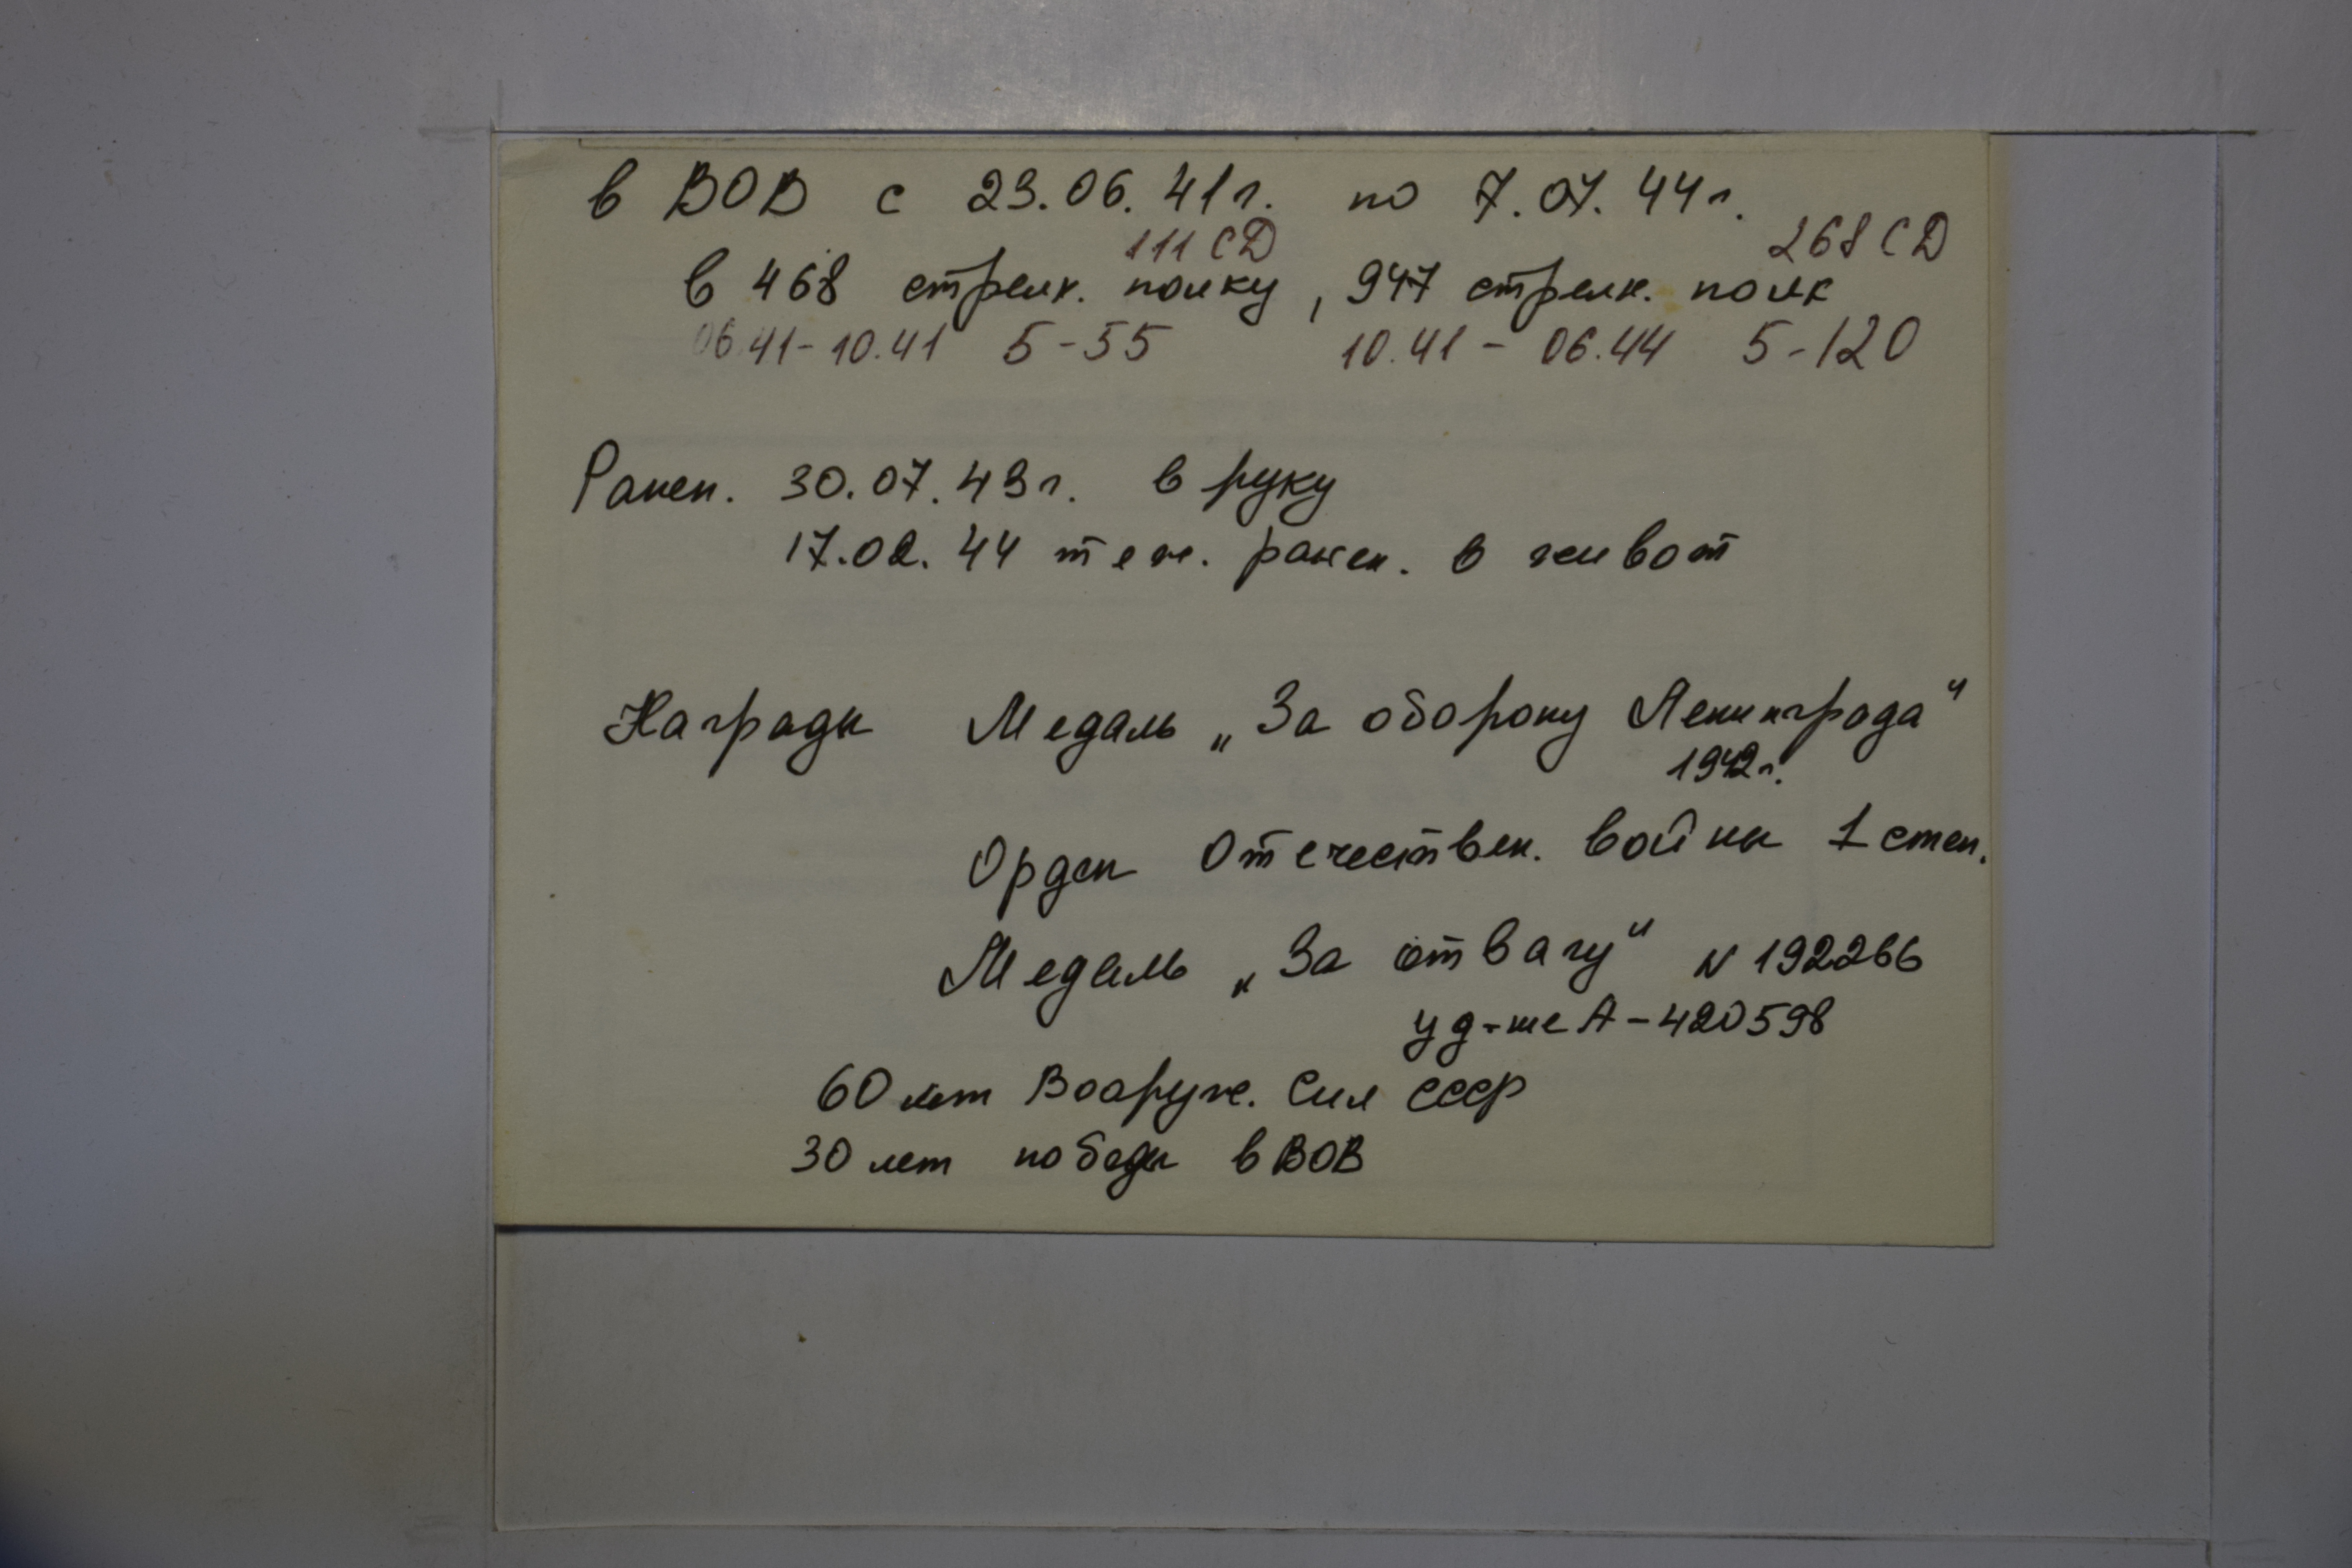 в ВОВ с 23.06.41г. по 7.07.44г.
111 СД 268 СД
в 468 стрелк. полку, 947 стрелк. полк
06.41-10.41 5-55 10.41 - 06.44 5-120
Ранен. 30.07.43г. в руку
17.02.44 тяж. ранен. в живот
Награды Медаль „За оборону Ленинграда"
1942г.
Орден Отечествен. войны 1 степ.
Медаль „За отвагу" N 192266
уд-ие А-420598
60 лет Вооруж. Сил СССР
30 лет победы в ВОВ